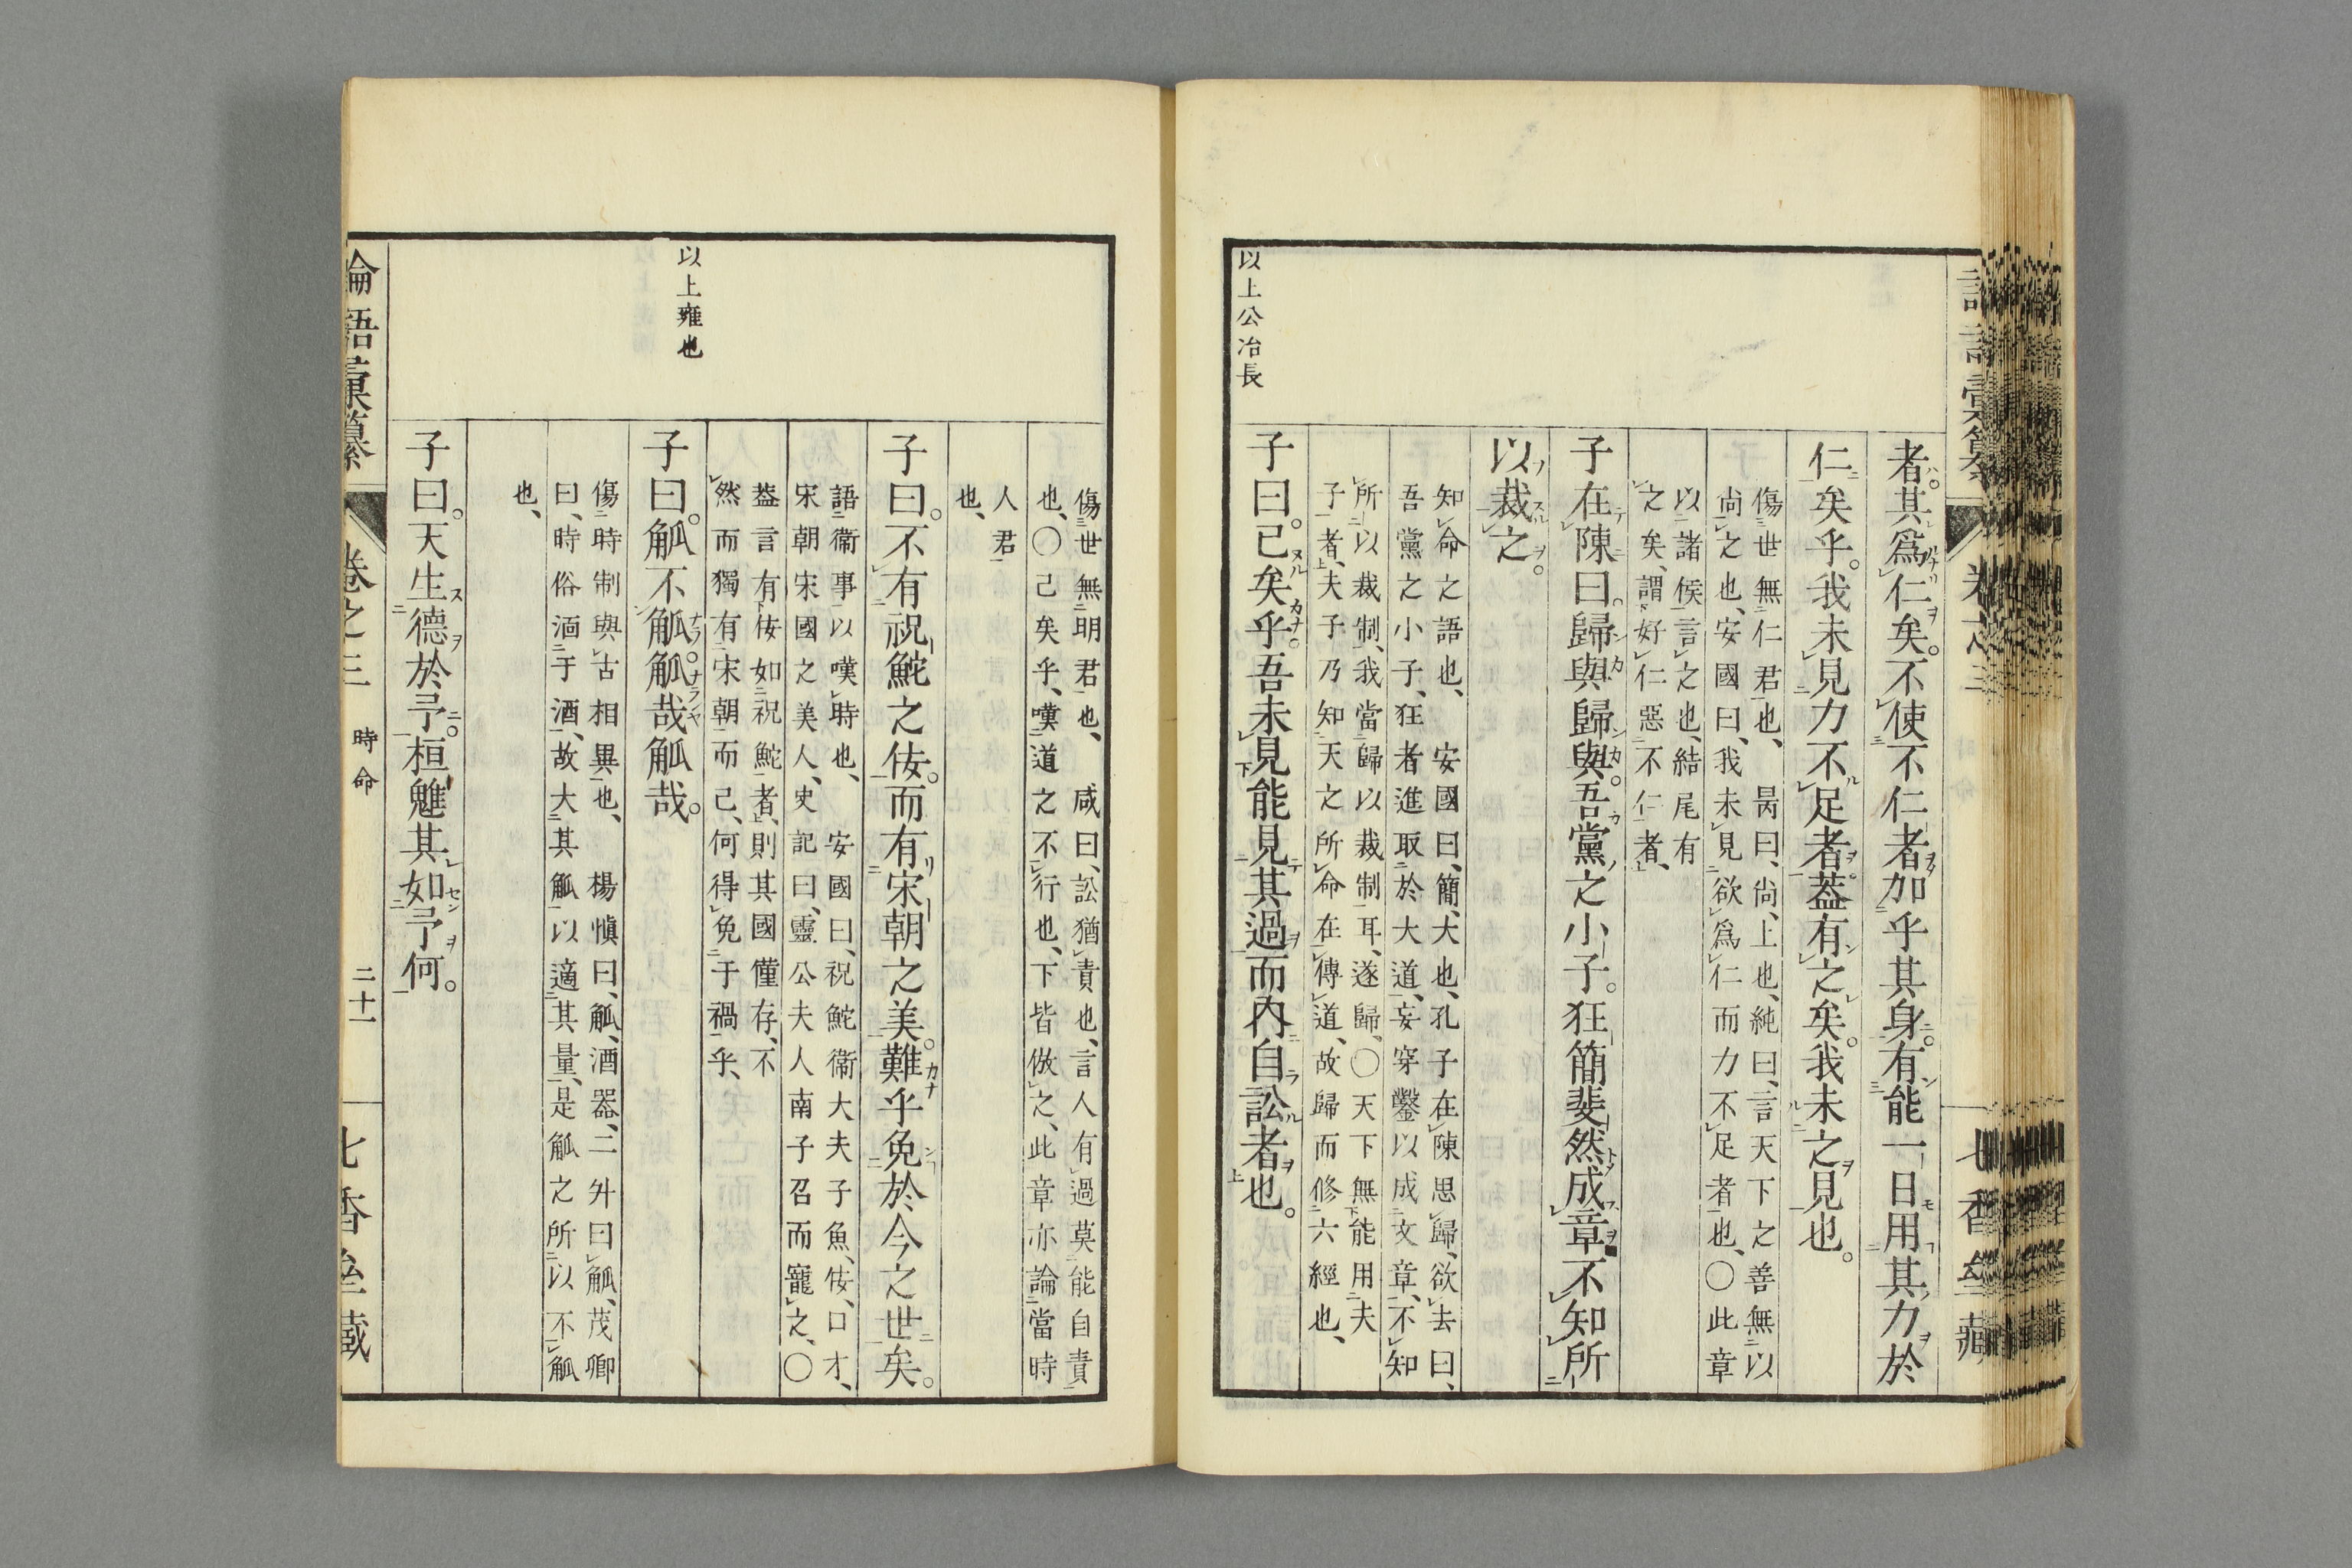 者其爲仁矣。不使不仁者加乎其身。有能一日用其力於
仁矣乎。我未見力不足者。蓋有之矣。我未之見也。
傷世無仁君也、 昺曰、尚、上也、純曰、言天下之善無以
尚之也、安國曰、我未見欲爲仁而力不足者也、〇此章
以諸侯言之也、結尾有
之矣、謂好仁惡不仁者、
子在陳曰。歸與歸與。吾黨之小子。狂簡斐然成章。不知所
以裁之。
知命之語也、 安國曰、簡、大也、孔子在陳思歸、欲去曰、
吾黨之小子、狂者進取於大道、妄穿鑿以成文章、不知
所以裁制、我當歸以裁制耳、遂歸、〇天下無能用夫
子者、夫子乃知天之所命在傳道、故歸而修六經也、
以上公冶長
子曰。已矣乎。吾未見能見其過而內自訟者也。
傷世無明君也、 咸曰、訟猶責也、言人有過莫能自責
也、〇已矣乎、嘆道之不行也、下皆倣之、此章亦論當時
人君
也、
子曰。不有祝鮀之佞。而有宋朝之美。難乎免於今之世矣。
語衞事以嘆時也、 安國曰、祝鮀衞大夫子魚、佞、口才、
宋朝宋國之美人、史記曰、靈公夫人南子召而寵之、〇
蓋言有佞如祝鮀者、則其國僅存、不
然而獨有宋朝而已、何得免于禍乎、
以上雍也
子曰。觚不觚。觚哉觚哉。
傷時制與古相異也、 楊愼曰、觚、酒器、二升曰觚、茂卿
曰、時俗湎于酒、故大其觚以適其量、是觚之所以不觚
也、
子曰。天生德於予。桓魋其如予何。
論語彙纂 卷之三 時命 二十一 七香齋藏